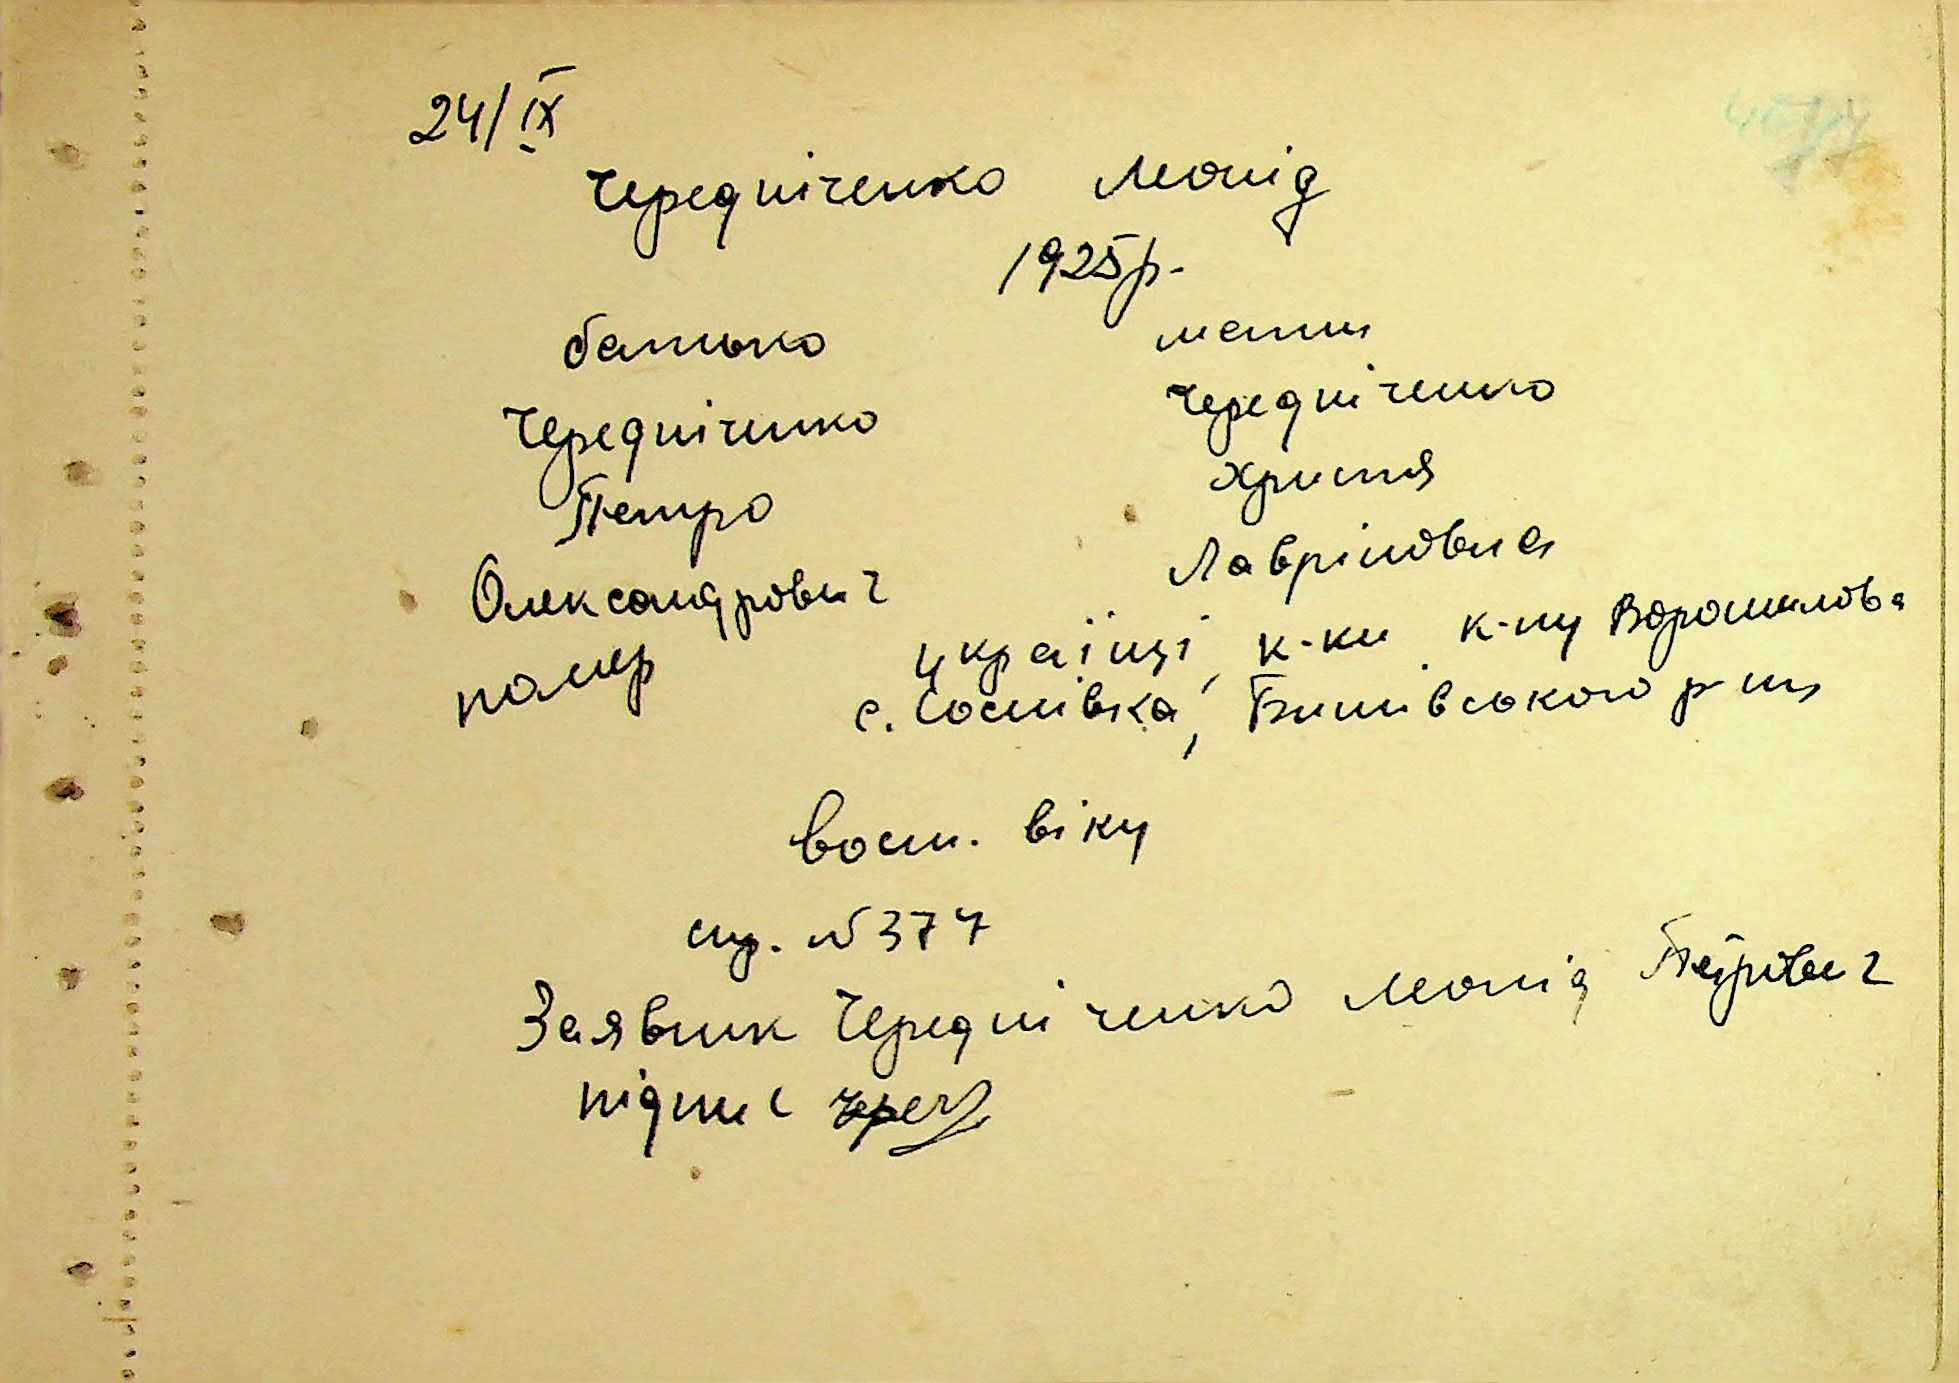 24/IX
Чередніченко Леонід
1925р.
батько мати
Чередніченко Чередніченко
Петро Христя
Олександрович Лавріновна
помер українці, к-ки к-пу Ворошилова
с. Соснівка, Бишівського р-ну
вост. віку
спр. №374
Заявник Чередніченко Леонід Петрович
підпис Черед